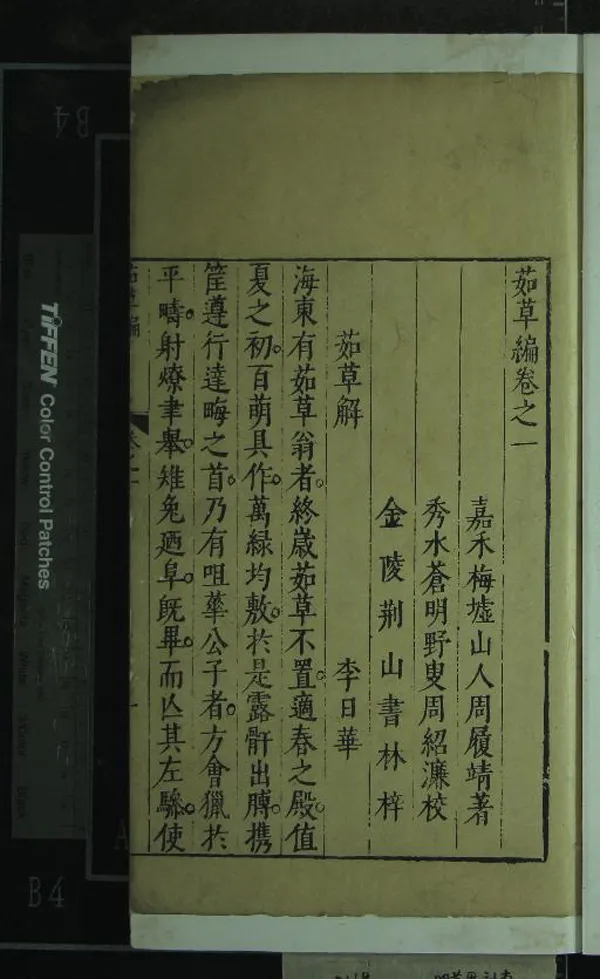 茹草編卷之一
嘉禾梅墟山人周履靖著
秀水蒼明野叟周紹濂校
金陵荆山書林梓
茹草解 李日華
海東有茹草翁者。終歲茹草不置。適春之殿。值
夏之初。百萌具作。萬緑均敷。於是露骭出膊。携
筐遵行達畮之首。乃有咀華公子者。方會獵於
平疇。射燎聿舉。雉兔廼阜。旣畢。而亾其左驂。使
TIFFEN Color Control Patches
B4
B4
A